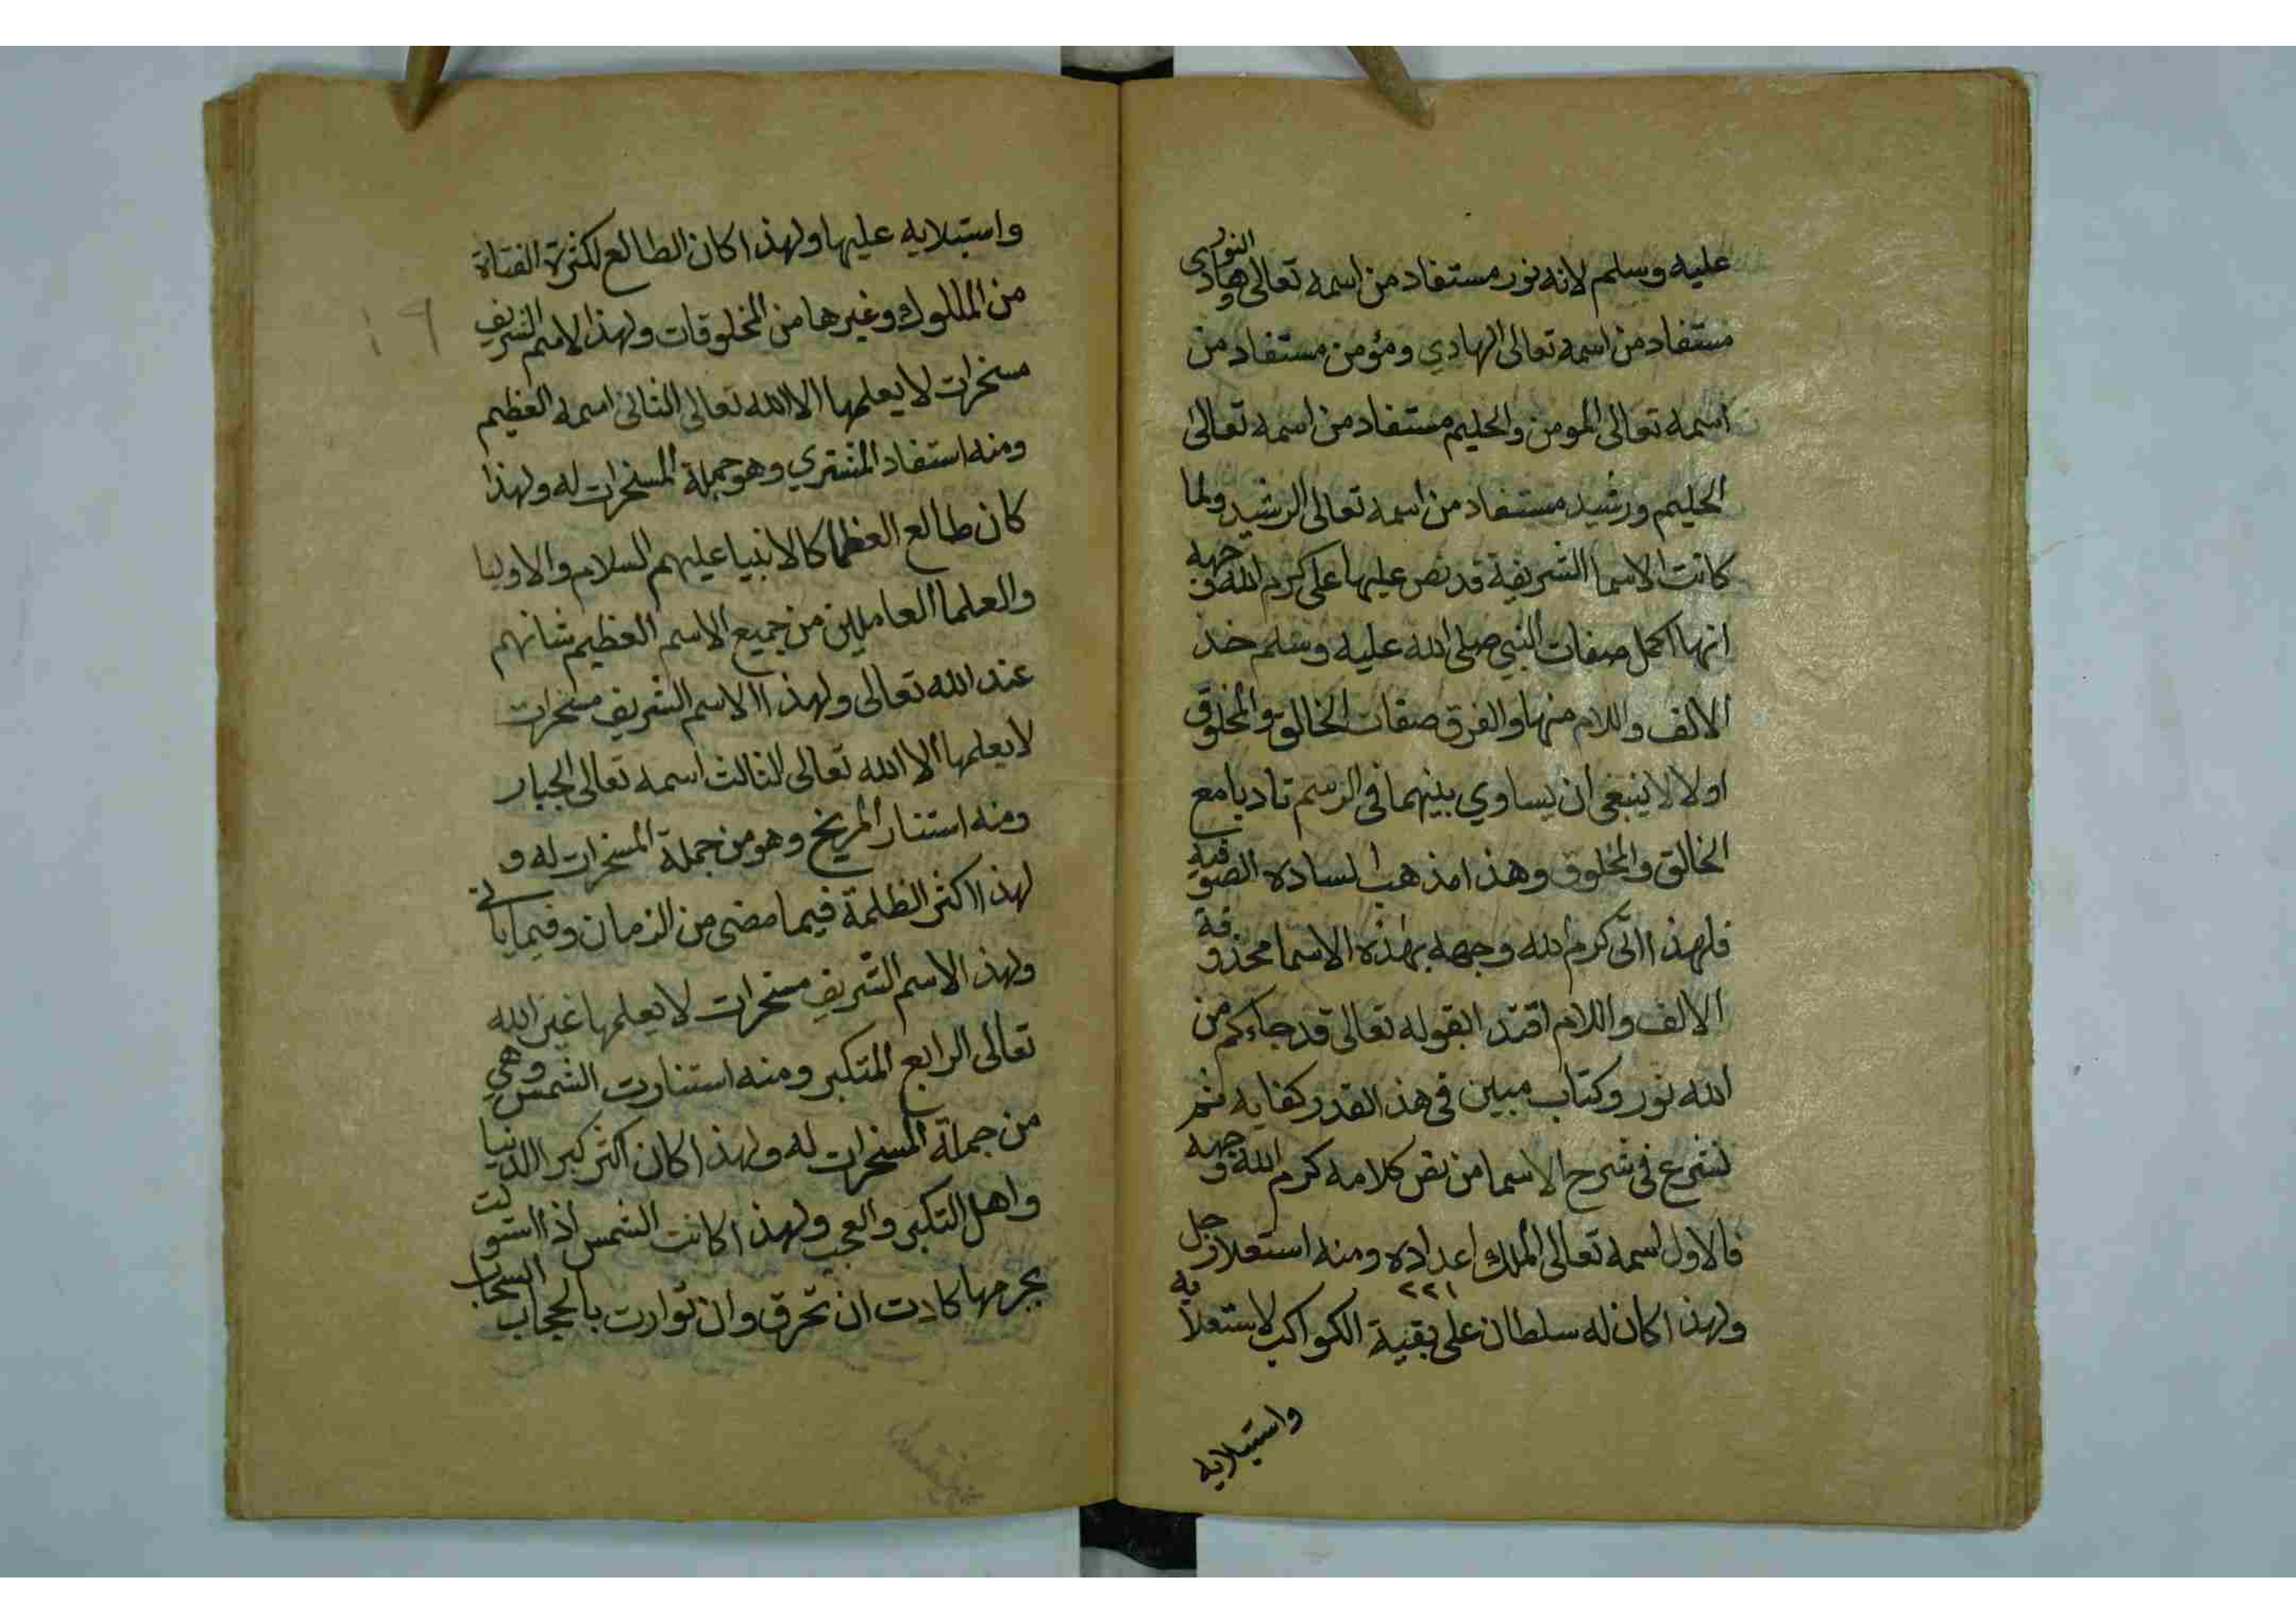 عليه وسلم لانه نور مستفاد من اسمه تعالى النور وهادى
مستفاد من اسمه تعالى الهادي ومؤمن مستفاد من
اسمه تعالى المومن والحليم مستفاد من اسمه تعالى
الحليم ورشيد مستفاد من اسمه تعالى الرشيد ولما
كانت الاسما الشريفة قد نص عليها على كرم الله وجهه
انها اكمل صفات النبي صلى الله عليه وسلم خذ
الالف واللام منها والفرق صفات الخالق والمخلوق
اولا لا ينبغي ان يساوي بينهما في الرسم تاديا مع
الخالق والمخلوق وهذا مذهب السادة الصوفية
فلهذا اتى كرم الله وجهه بهذه الاسما محذوفة
الالف واللام اقتدا بقوله تعالى قد جاءكم من
الله نور وكتاب مبين في هذا القدر كفايه ثم
نشرع في شرح الاسما من نص كلامه كرم الله وجهه
فالاول اسمه تعالى الملك اعداده ٢٢١ ومنه استعلا زحل
ولهذا كان له سلطان على بقية الكواكب لاستعلايه
واستيلايه
واستيلايه عليها ولهذا كان الطالع لكثرة
من الملوك وغيرها من المخلوقات ولهذ الاسم الشريف
مسخرات لا يعلمها الا الله تعالى الثانى اسمه العظيم
ومنه استفاد المشتري وهو جملة المسخرات له ولهذا
كان طالع العظما كالانبيا عليهم السلام والاوليا
والعلما العاملين من جميع الاسم العظيم شانهم
عند الله تعالى ولهذا الاسم الشريف مسخرات
لا يعلمها الا الله تعالى الثالث اسمه تعالى الجبار
ومنه استنار المريخ وهو من جملة المسخرات له و
لهذا اكثر الظلمة فيما مضى من الزمان وفيما ياتى
ولهذ الاسم الشريف مسخرات لا يعلمها غير الله
تعالى الرابع المتكبر ومنه استنارت الشمس وهي
من جملة المسخرات له ولهذا كان اكثر كبر الدنيا
واهل التكبر والعجب ولهذا كانت الشمس اذا استولت
بجرمها كادت ان تحرق وان توارت بالحجاب السحاب
١٩